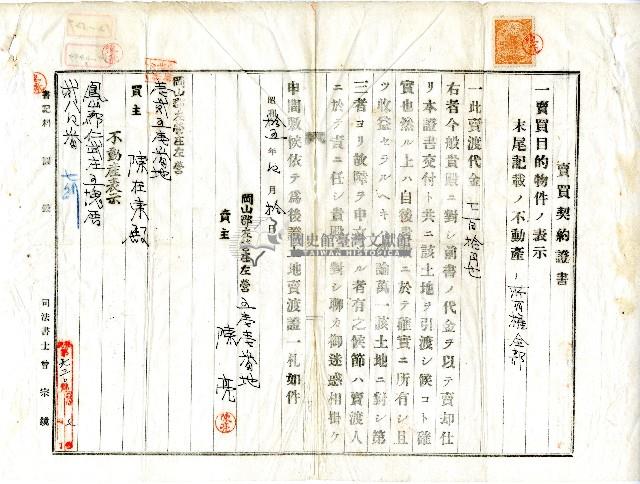 賣買契約證書
一賣買目的物件ノ表示
末尾記載ノ不動産ノ所有權全部
一此賣渡代金
右者今般貴殿ニ對シ前書ノ代金ヲ以テ賣却仕
リ本證書交付ト共ニ該土地ヲ引渡シ候コト確
實也然ル上ハ自後貴殿ニ於テ確實ニ所有シ且
ツ收益セラルヘキハ勿論萬一該土地ニ對シ第
三者ヨリ故障ヲ申出ツル者有之候節ハ賣渡人
ニ於テ責ニ任シ貴殿ニ對シ聊カ御迷惑相掛ケ
申間敷候依テ爲後證土地賣渡證一札如件
昭和拾五年 月拾 日
岡山郡左營庄左營
賣主 陳亮
岡山郡左營庄左營
買主 陳在 殿
不動産表示
鳳山郡仁武庄五塊厝
書記料 圓 錢
司法書士曾宗鏡
國史館臺灣文獻館
TAIWAN HISTORICA